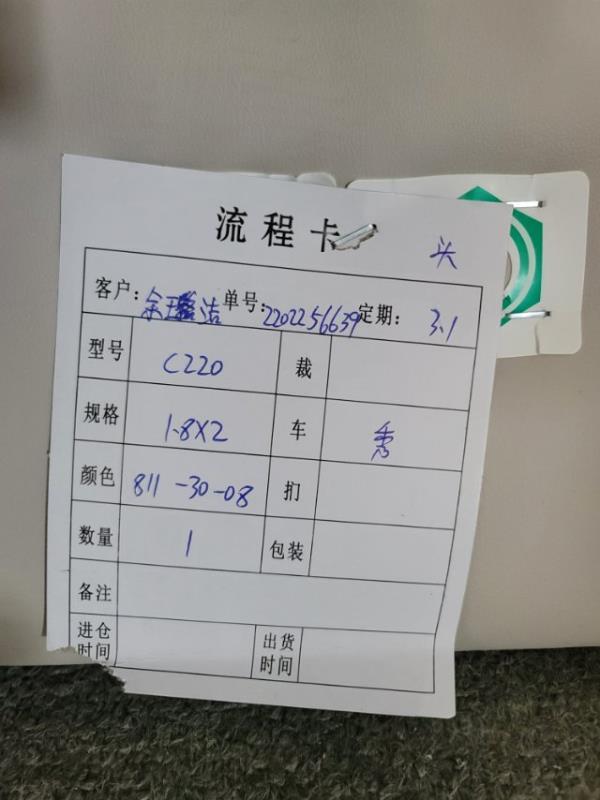 流程卡
头
客户: 余 洁 单号: 2202256639 定期: 3.1
型号 C220 裁
规格 1.8X2 车 秀
颜色 811-30-08 扪
数量 1 包装
备注
进仓时间 出货时间